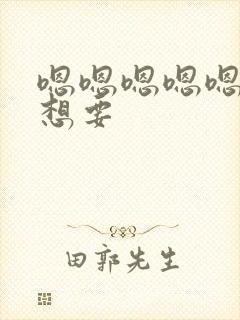 嗯嗯嗯嗯嗯
想要
田郭先生